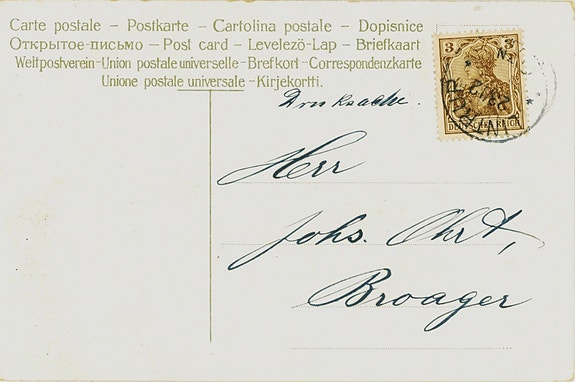 Carte postale – Postkarte – Cartolina postale – Dopisnice
Открытое-письмо – Post card – Levelezö-Lap – Briefkaart
Weltpostverein-Union postale universelle-Brefkort-Correspondenzkarte
Unione postale universale -Kirjekortti.
Drucksache.
3 3
DEUTSCHES REICH
Herr
Johs. Ohrt,
Broager